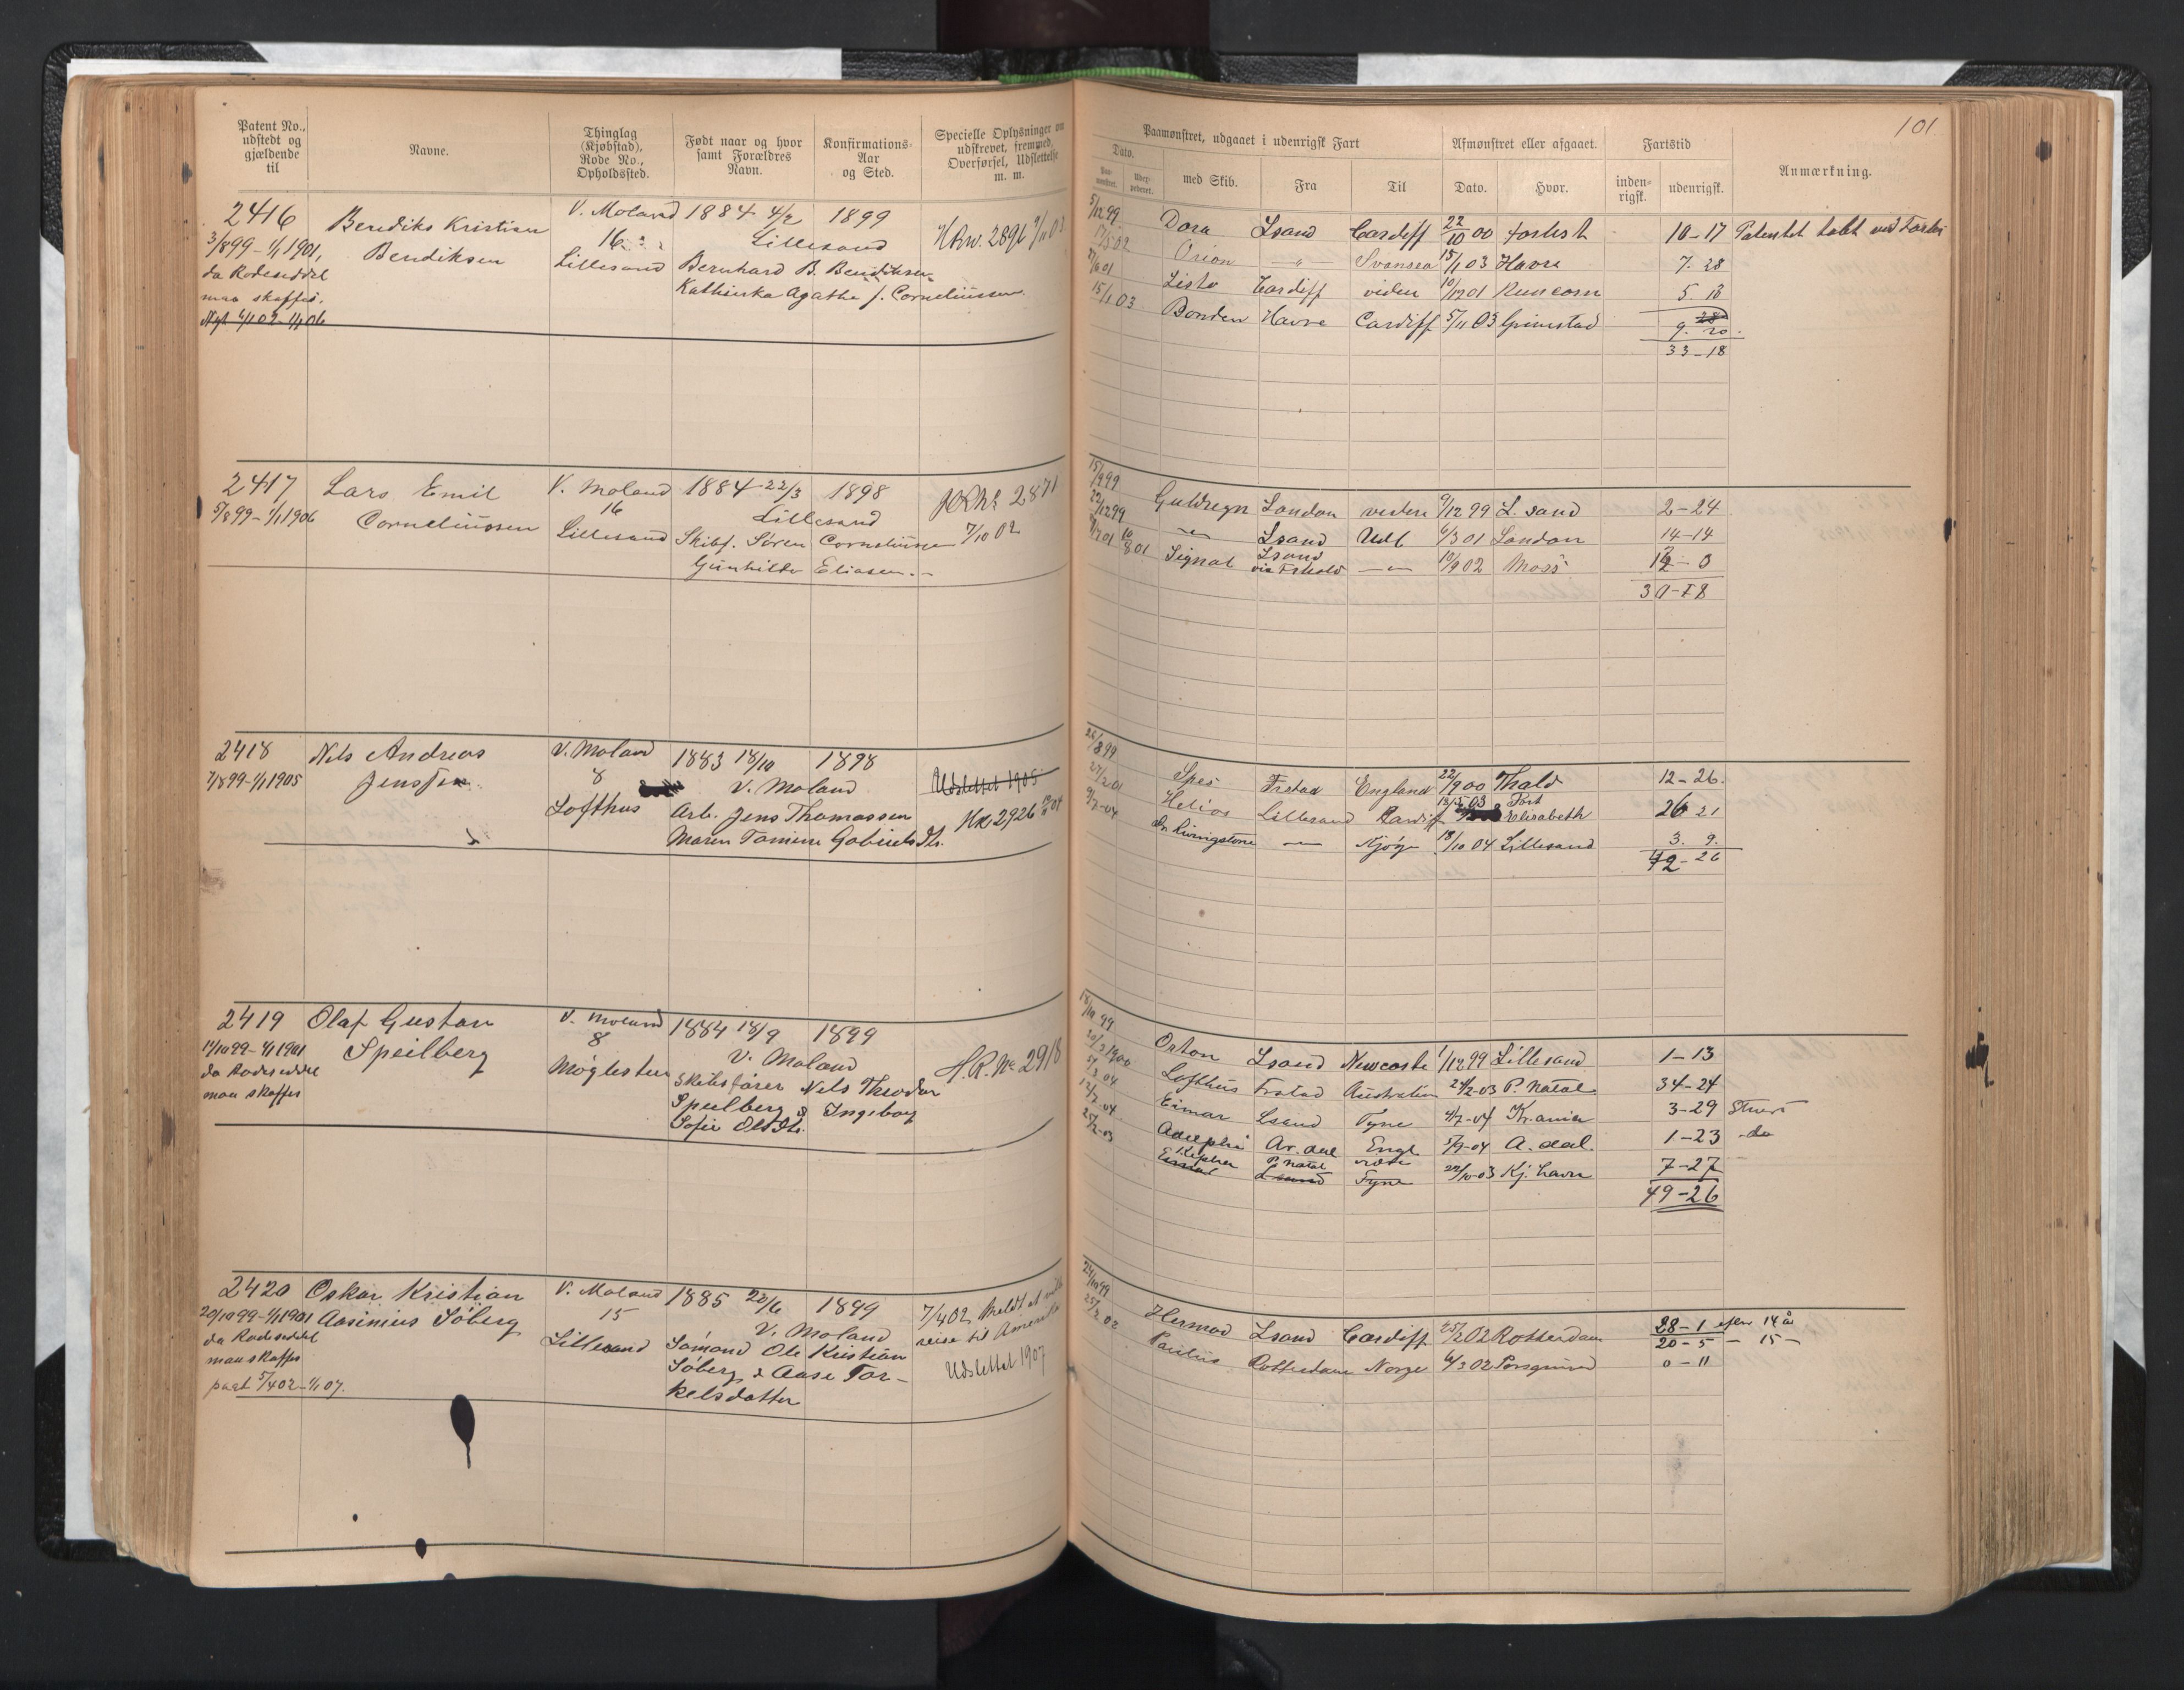 Patent No., udstedt og gjældende til
Navne.
Thinglag (Kjøbstad), Rode No., Opholdssted.
Født naar og hvor samt Forældres Navn.
Konfirmations-Aar og Sted.
Specielle Oplysninger om udskrevet, fremmed, Overførsel, Udslettelse m. m.
2416 Bendiks Kristian V. Moland 1884 4/2 1899
3/8 99 - 1/1 1901, Bendiksen 16 Lillesand H.R.No. 2896
da Rodeseddel Lillesand Bernhard B. Bendiksen
maa skaffes. Kathinka Agathe f. Corneliussen
Nyt 6/1 02 - 1/1 06
2417 Lars Emil V. Moland 1884 22/3 1898
5/8 99 - 1/1 1906 Corneliussen 16 Lillesand 2871
Lillesand Skibsf. Søren Corneliussen 7/10 02
Gunhilde Eliasen
2418 Nils Andreas V. Moland 1883 18/10 1898
7/8 99 - 1/1 1905 Jenssen 8 V. Moland Udslettet 1905
Lofthus Arb. Jens Thomassen 2926
Maren Tomine Gabriels Dtr.
2419 Olaf Gustav V. Moland 1884 18/9 1899
14/10 99 - 1/1 1901 Speilberg 8 V. Moland H.R. No 2918
da Rodeseddel Møglestu Skibsfører Nils Theodor
maa skaffes Speilberg & Ingeborg
Sofie Ols Dtr.
2420 Oskar Kristian V. Moland 1885 20/6 1899
20/10 99 - 1/1 1901 Aasinius Søberg 15 V. Moland 7/4 02 Meldt at ville
da Rodeseddel Lillesand Sømand Ole Kristian reise til Amerika
maa skaffes Søberg & Aase Tor- Udslettet 1907
paat 5/4 02 - 1/1 07. kelsdatter
101
Paamønstret, udgaaet i udenrigsk Fart
Afmønstret eller afgaaet.
Fartstid
Anmærkning.
Dato.
med Skib.
Fra
Til
Dato.
Hvor.
inden-rigsk.
udenrigsk.
5/12 99 Dora Lsand Cardiff 22/10 00 forlist 10-17 Patentet tabt ved Forlis
17/5 02 Orion -"- Svansea 15/1 03 Havre 7. 28
Lista Cardiff viden 10/12 01 Runcorn 5. 13
15/1 03 Bonden Havre Cardiff 5/11 03 Grimstad 9. 20
33-18
15/9 99 Guldregn London videre 9/12 99 L. sand 2-24
22/12 99 -"- Lsand Udl 6/3 01 London 14-14
Signal Lsand via Frhald -"- 10/9 02 Moss
26/8 99 Spes Frstad England 22/9 00 Fhald 12-26.
27/2 01 Helios Lillesand Cardiff 13/5 03 Port Elisabeth 26 21
9/7-04 Dr Livingstone -"- Kjøge 18/10 04 Lillesand 3. 9.
42-26
18/10 99 Orton Lsand Newcastle 1/12 99 Lillesand 1-13
Lofthus Frstad Australien 24/2-03 P. Natal 34-24
Eimar Lsand Tyne 4/7-04 Kr.ania 3-29 Stuert
12/7-04 Adelphi Ar. dal Engl. 5/9-04 A. dal 1-23 do
Kepler P. Natal videre 22/10-03 Kj. havn 7-27
Eimar Lsand Tyne
49-26
24/10 99 Hermod Lsand Cardiff 25/2 02 Rotterdam 28-1 efter 14 år
20-5 - 15 -
25/2 02 Paulus Rotterdam Norge 6/3 02 Porsgrund 0-11